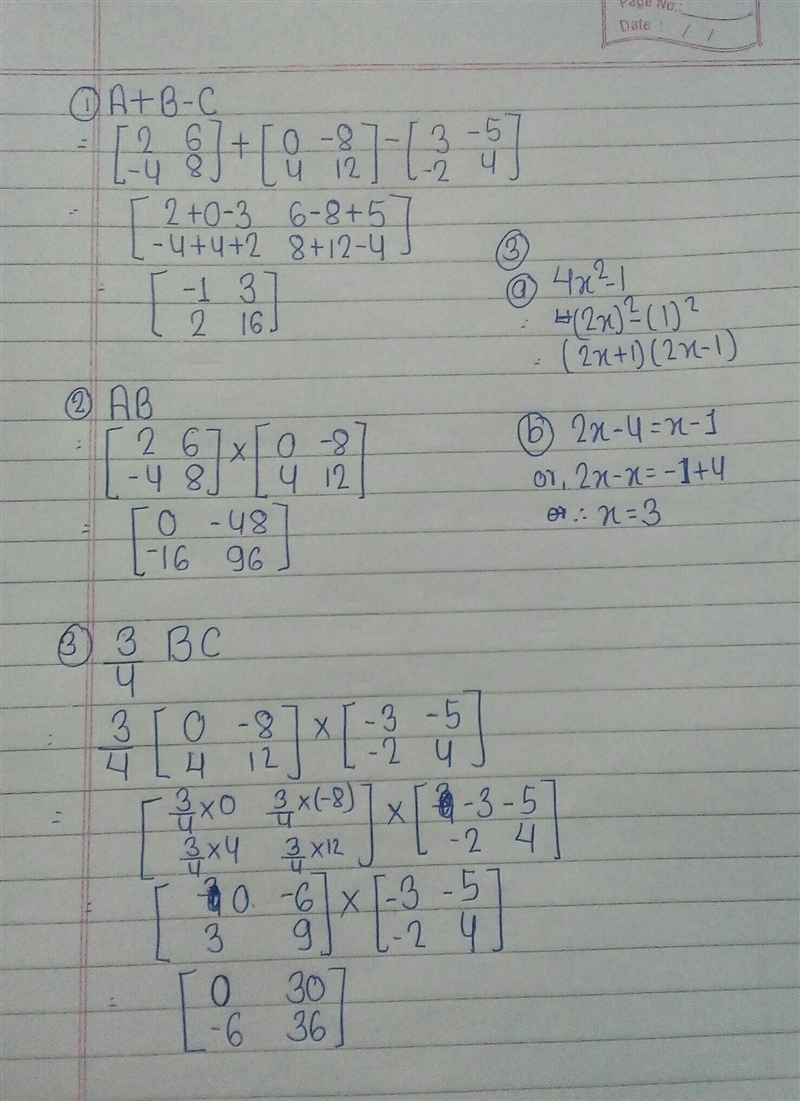 Page No.:
Date : / /
① A+B-C
= [2 6 -4 8] + [0 -8 4 12] - [3 -5 -2 4]
= [2+0-3 6-8+5 -4+4+2 8+12-4]
= [-1 3 2 16]
② AB
= [2 6 -4 8] × [0 -8 4 12]
= [0 -48 -16 96]
③ 3/4 BC
= 3/4 [0 -8 4 12] × [-3 -5 -2 4]
= [3/4×0 3/4×(-8) 3/4×4 3/4×12] × [-3 -5 -2 4]
= [0 -6 3 9] × [-3 -5 -2 4]
= [0 30 -6 36]
③
ⓐ 4x²-1
= (2x)²-(1)²
= (2x+1)(2x-1)
ⓑ 2x-4=x-1
or, 2x-x=-1+4
∴ x=3